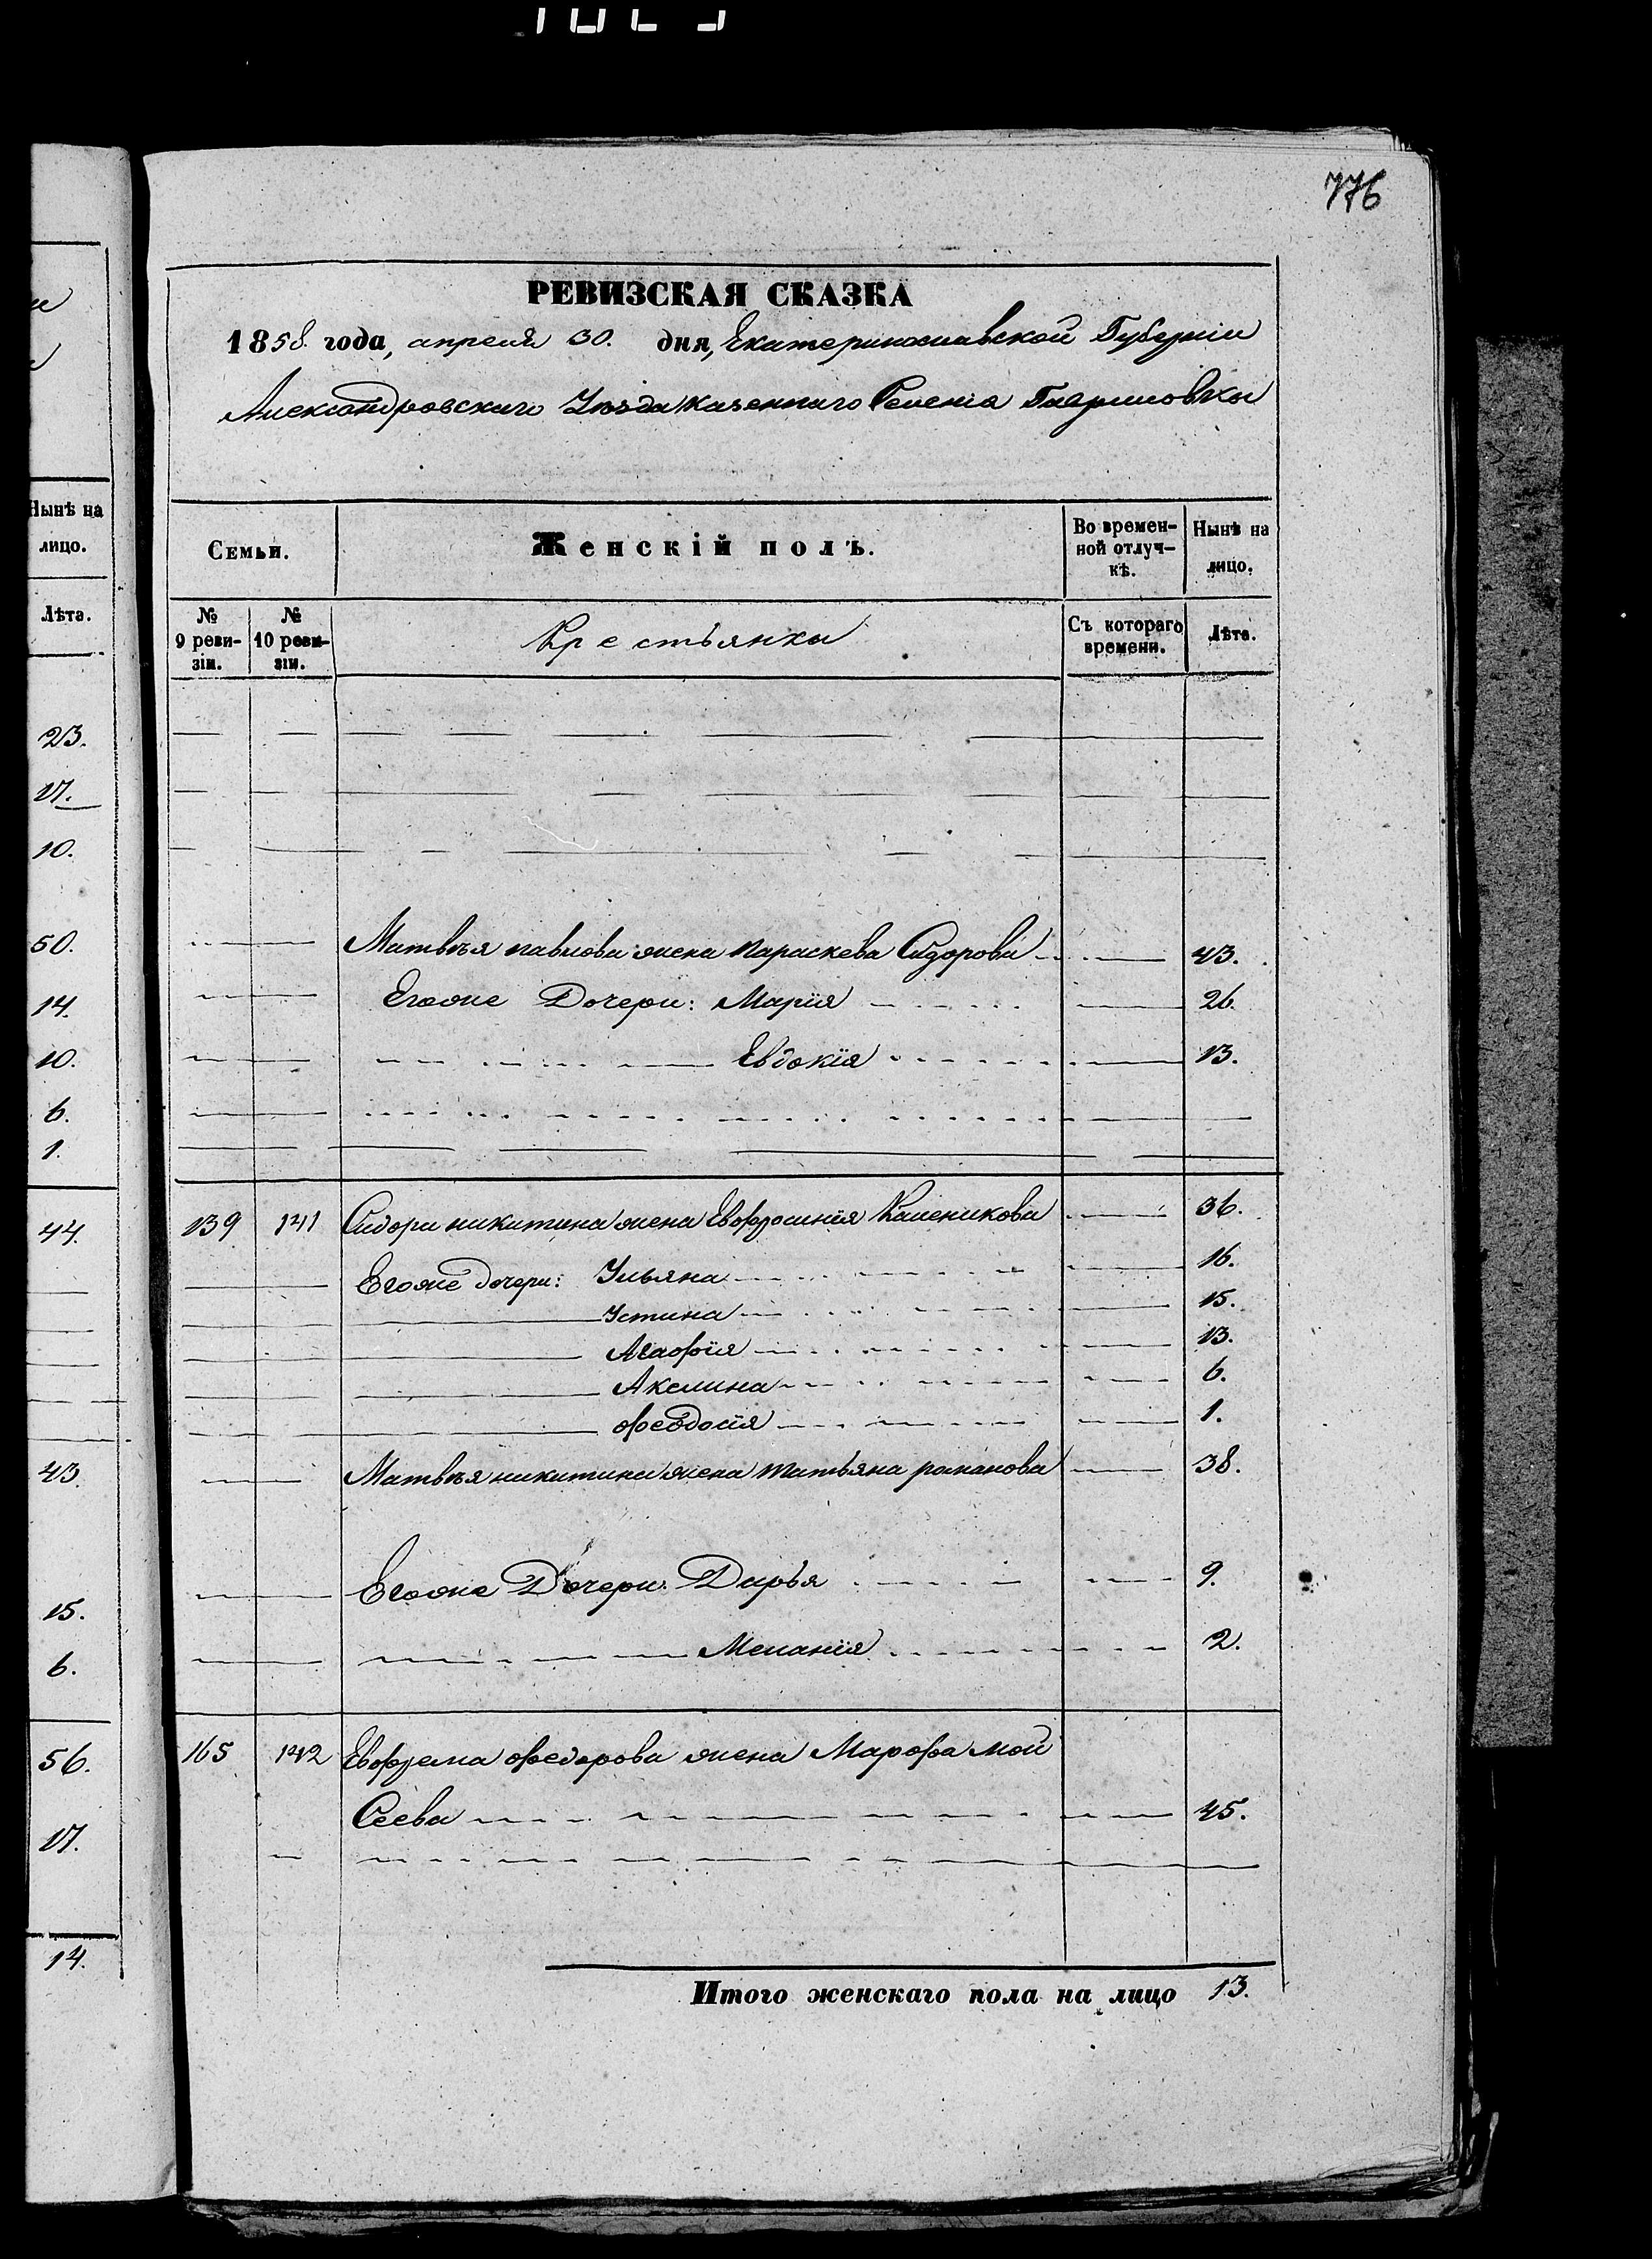 776
РЕВИЗСКАЯ СКАЗКА
1858 года, апреля 30. дня, Екатеринославской Губерніи
Александровскаго Уѣзда казеннаго Селенія Гавриловки
Нынѣ на
лицо.
Лѣта.
23.
17.
10.
50.
14.
10.
6.
1.
44.
43.
15.
6.
56.
17.
14.
Семьи.
Женскій полъ.
Во времен-
ной отлуч-
кѣ.
Нынѣ на
лицо.
№
9 реви-
зіи.
№
10 реви-
зіи.
Крестьянки
Съ котораго
времени.
Лѣта.
Матвѣя павлова жена параскева Сидорова 43.
Егоже Дочери: Марія 26.
Евдокія 13.
139 141 Сидора никитина жена Евфросинія Каленикова 36.
Егоже дочери: Ульяна 16.
Устина 15.
Агафія 13.
Акелина 6.
феодосія 1.
Матвѣя никитина жена татьяна романова 38.
Егоже Дочери: Дарья 9.
Меланія 2.
165 142 Евфрема федорова жена Марфа мой
Сеева 45.
Итого женскаго пола на лицо 13.